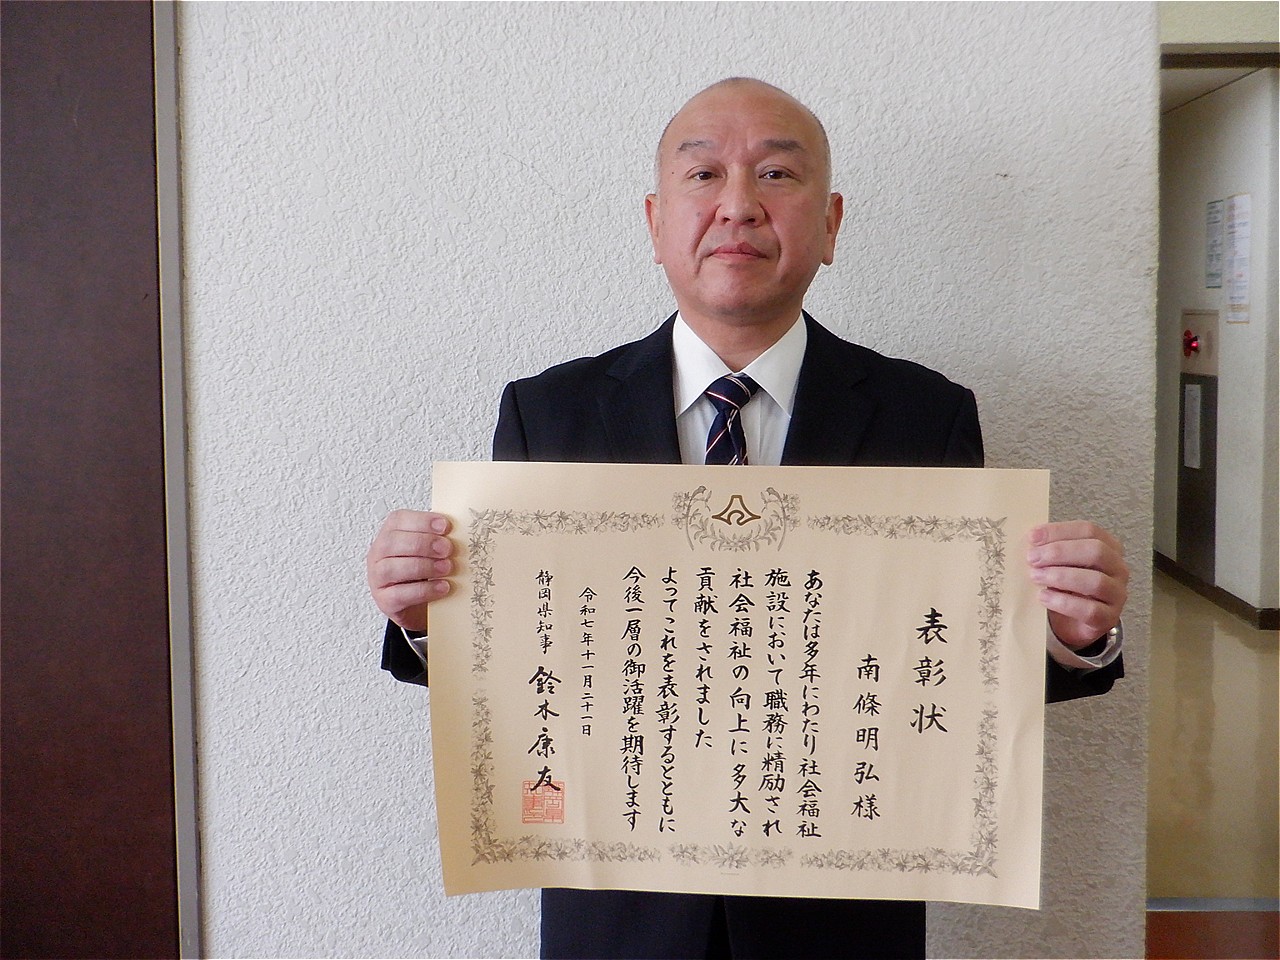 表彰状
南條明弘様
あなたは多年にわたり社会福祉
施設において職務に精励され
社会福祉の向上に多大な
貢献をされました
よってこれを表彰するとともに
今後一層の御活躍を期待します
令和七年十一月二十一日
静岡県知事 鈴木康友